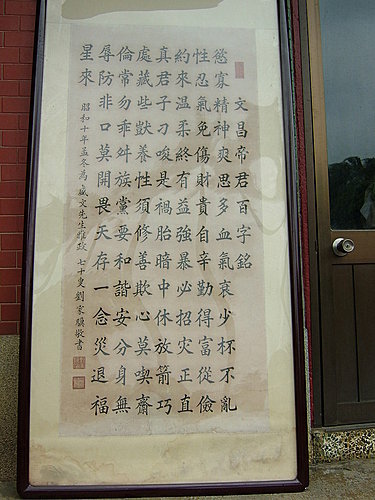 文昌帝君百字銘
慾寡精神爽思多血氣衰少杯不亂
性忍氣免傷財貴自辛勤得富從儉
約來温柔終有益強暴必招灾正直
真君子刁唆是禍胎暗中休放箭巧
處藏些獃養性須修善欺心莫喫齋
倫常勿乖舛族黨要和諧安分身無
辱防非口莫開畏天存一念災退福
星來
昭和十年孟冬為 盛文先生雅政 七十叟劉家書